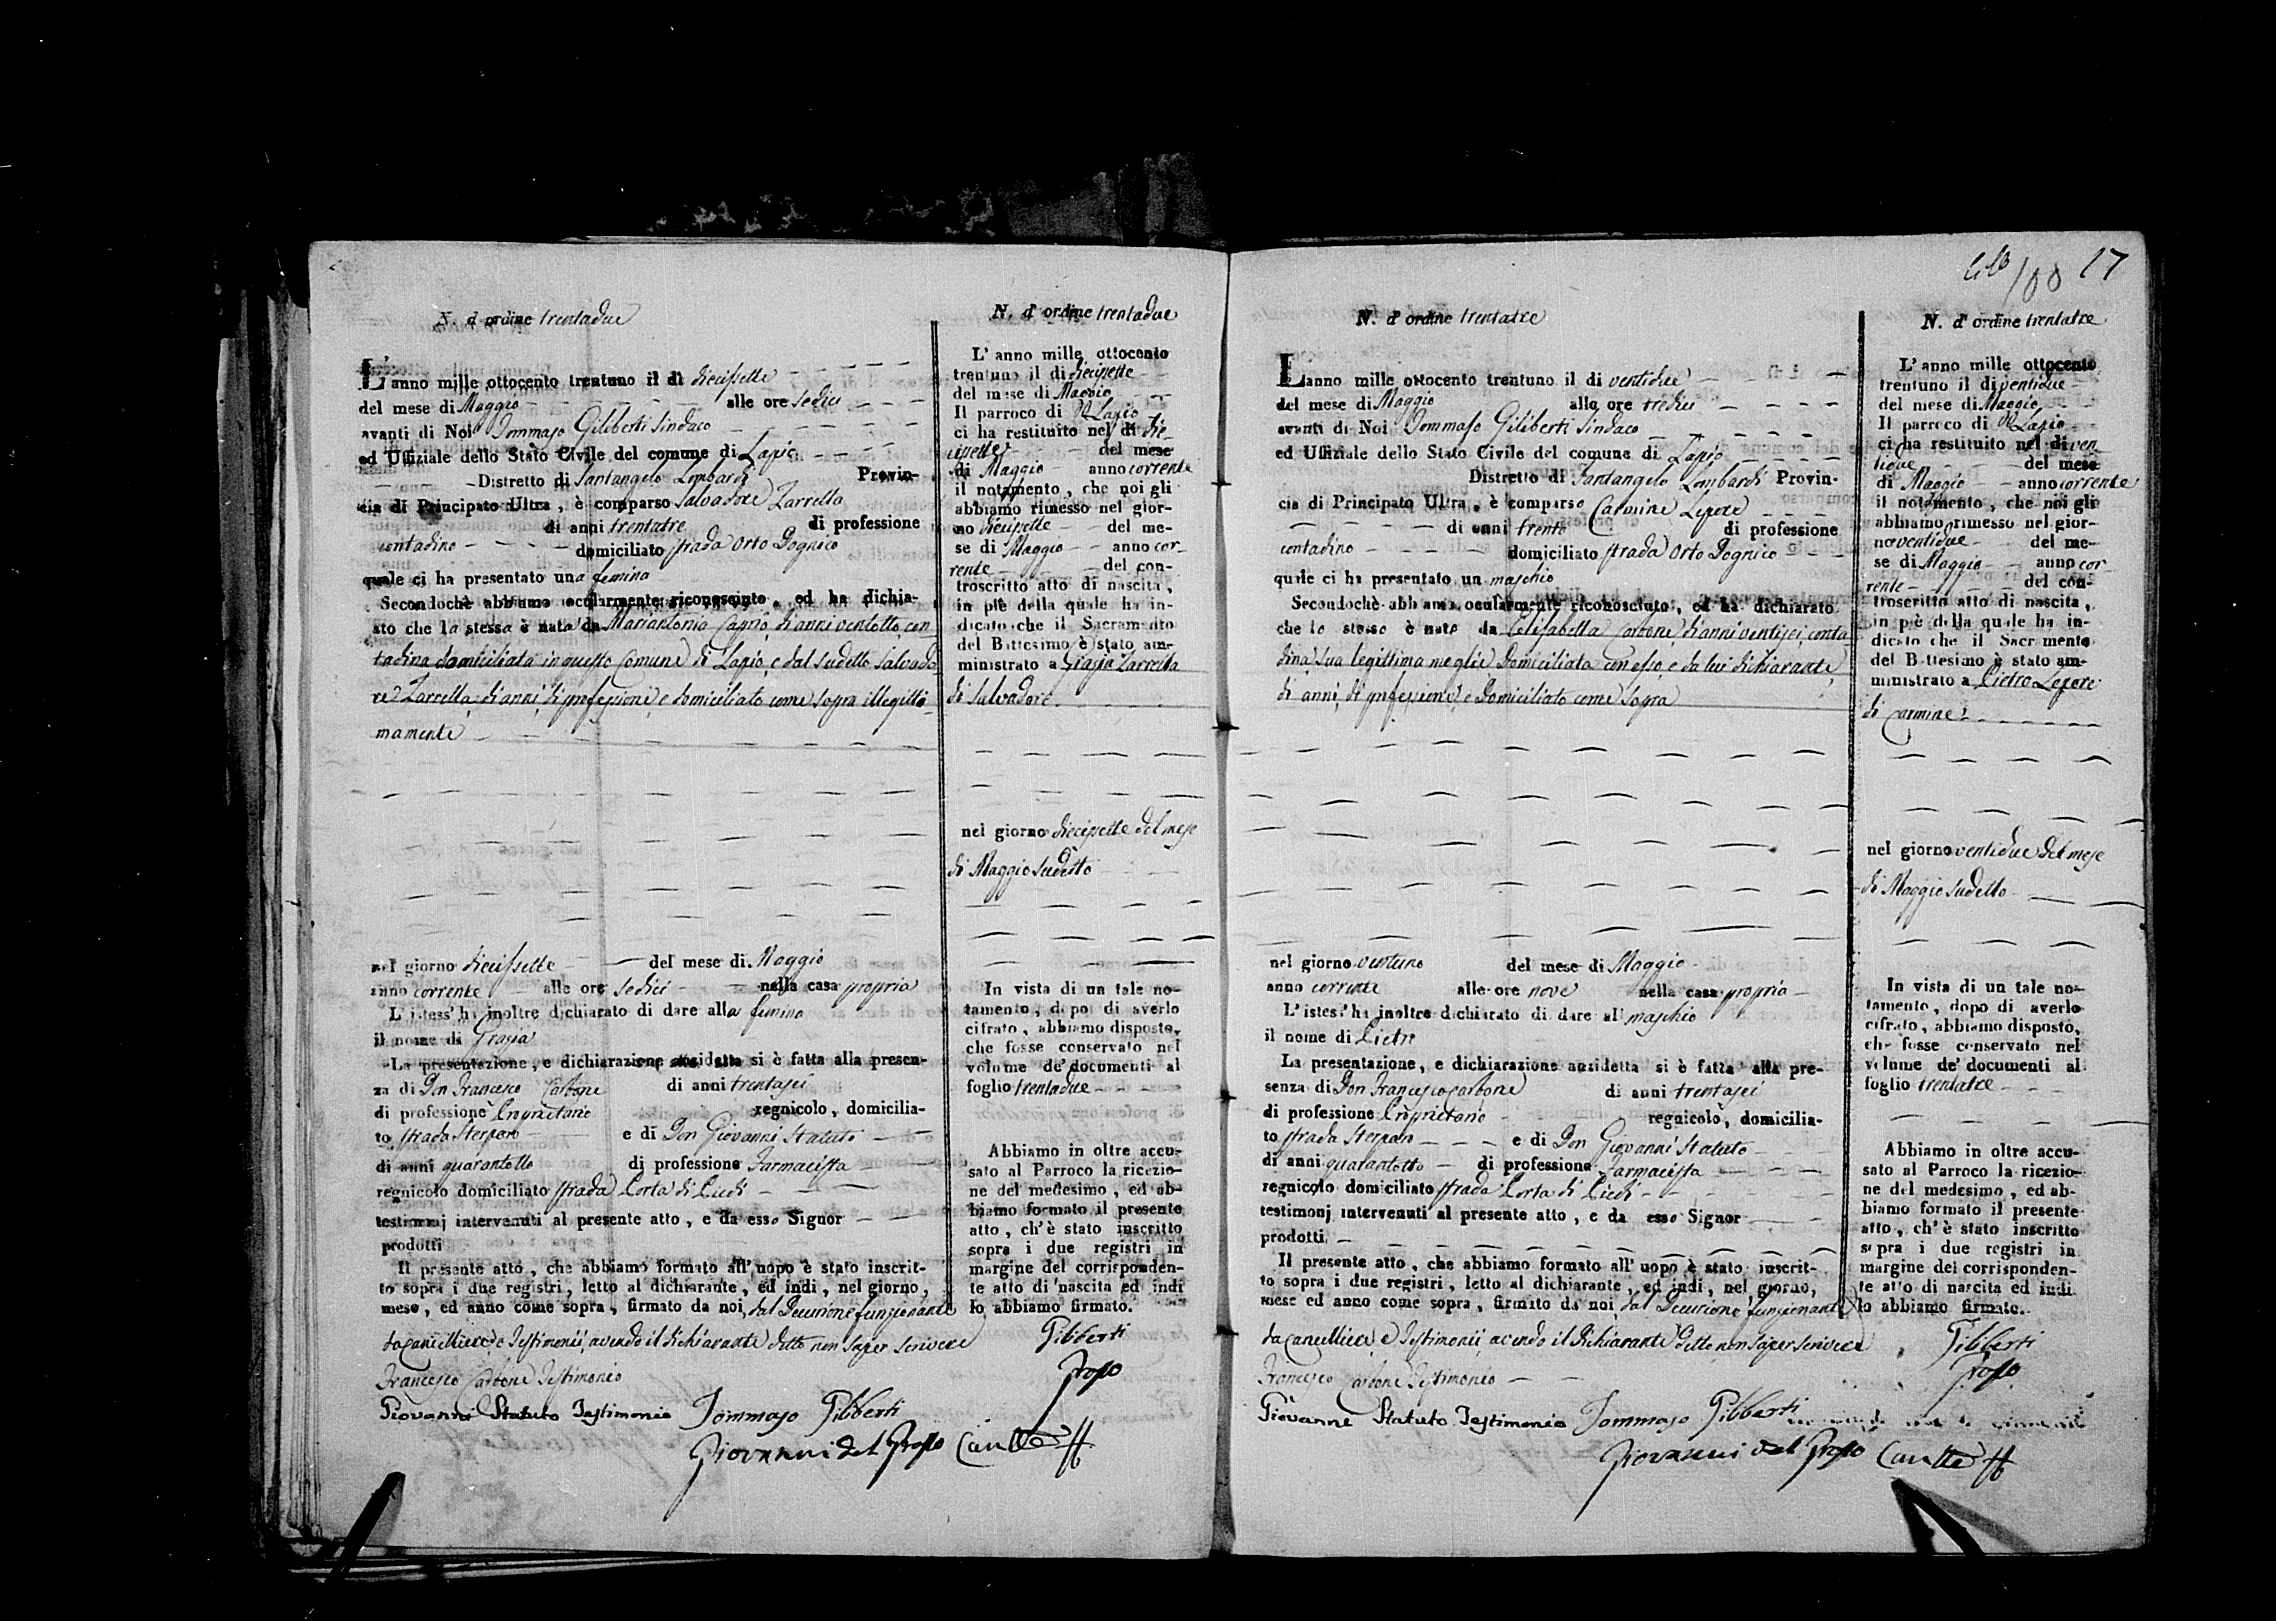 N. d'ordine trentadue
L'anno mille ottocento trentuno il dì diecissette
del mese di Maggio alle ore sedici
avanti di Noi Tommaso Giliberti Sindaco
ed Uffiziale dello Stato Civile del comune di Lapio
Distretto di Santangelo Lombardi Provin-
cia di Principato Ultra, è comparso Salvadore Zarrella
di anni trentatre di professione
contadino domiciliato strada Orto Dognico
quale ci ha presentato una femina
Secondochè abbiamo ocularmente riconosciuto, ed ha dichia-
ato che la stessa è nata da Mariantonia Caprio, di anni ventotto, con
tadina domiciliata in questo Comune di Lapio, e dal sudetto Salvado
re Zarrella, di anni, di professione, e domiciliato come sopra illegitti
mamente
nel giorno diecissette del mese di Maggio
anno corrente alle ore sedici nella casa propria
L'istess' ha inoltre dichiarato di dare alla femina
il nome di Grazia
La presentazione, e dichiarazione ansidetta si è fatta alla presen-
za di Don Francesco Carbone di anni trentasei
di professione Proprietario regnicolo, domicilia-
to strada Sterparo e di Don Giovanni Statuto
di anni quarantotto di professione Farmacista
regnicolo domiciliato strada Porta di Piedi
testimonj intervenuti al presente atto, e da esso Signor
prodotti
Il presente atto, che abbiamo formato all'uopo è stato inscrit-
to sopra i due registri, letto al dichiarante, ed indi, nel giorno,
mese, ed anno come sopra, firmato da noi, dal Decurione funzionante
da Cancelliere, e Testimonii, avendo il dichiarante detto non saper scrivere
Francesco Carbone Testimonio
Giovanni Statuto Testimonio Tommaso Giliberti
Giovanni del Grosso Canc.re
N. d'ordine trentadue
L'anno mille ottocento
trentuno il dì diecissette
del mese di Maggio
Il parroco di Lapio
ci ha restituito nel dì die-
cissette del mese
di Maggio anno corrente
il notamento, che noi gli
abbiamo rimesso nel gior-
no diecissette del me-
se di Maggio anno cor-
rente del con-
troscritto atto di nascita,
in piè della quale ha in-
dicato che il Sacramento
del Battesimo è stato am-
ministrato a Grazia Zarrella
di Salvadore
nel giorno diecissette del mese
di Maggio sudetto
In vista di un tale no-
tamento, dopo di averlo
cifrato, abbiamo disposto,
che fosse conservato nel
volume de' documenti al
foglio trentadue
Abbiamo in oltre accu-
sato al Parroco la ricezio-
ne del medesimo, ed ab-
biamo formato il presente
atto, ch'è stato inscritto
sopra i due registri in
margine del corrisponden-
te atto di nascita ed indi
lo abbiamo firmato.
Giliberti
Grosso
100 17
N. d'ordine trentatre
L'anno mille ottocento trentuno il dì ventidue
del mese di Maggio alle ore tredici
avanti di Noi Tommaso Giliberti Sindaco
ed Uffiziale dello Stato Civile del comune di Lapio
Distretto di Santangelo Lombardi Provin-
cia di Principato Ultra, è comparso Carmine Lepore
di anni trenta di professione
contadino domiciliato strada Orto Dognico
quale ci ha presentato un maschio
Secondochè abbiamo ocularmente riconosciuto, ed ha dichiarato
che lo stesso è nato da Elisabetta Carbone, di anni ventisei, conta
dina, sua legittima moglie domiciliata con esso, e da lui dichiarante,
di anni, di professione, e domiciliato come sopra
nel giorno ventuno del mese di Maggio
anno corrente alle ore nove nella casa propria
L'istess' ha inoltre dichiarato di dare al maschio
il nome di Pietro
La presentazione, e dichiarazione ansidetta si è fatta alla pre-
senza di Don Francesco Carbone di anni trentasei
di professione Proprietario regnicolo, domicilia-
to strada Sterparo e di Don Giovanni Statuto
di anni quarantotto di professione Farmacista
regnicolo domiciliato strada Porta di Piedi
testimonj intervenuti al presente atto, e da esso Signor
prodotti.
Il presente atto, che abbiamo formato all'uopo è stato inscrit-
to sopra i due registri, letto al dichiarante, ed indi, nel giorno,
mese ed anno come sopra, firmato da noi, dal Decurione funzionante
da Cancelliere, e Testimonii, avendo il dichiarante detto non saper scrivere
Francesco Carbone Testimonio
Giovanni Statuto Testimonio Tommaso Giliberti
Giovanni del Grosso Canc.re
N. d'ordine trentatre
L'anno mille ottocento
trentuno il dì ventidue
del mese di Maggio
Il parroco di Lapio
ci ha restituito nel dì ven
tidue del mese
di Maggio anno corrente
il notamento, che noi gli
abbiamo rimesso nel gior-
no ventidue del me-
se di Maggio anno cor
rente del con-
troscritto atto di nascita,
in piè della quale ha in-
dicato che il Sacramento
del Battesimo è stato am-
ministrato a Pietro Lepore
di Carmine
nel giorno ventidue del mese
di Maggio sudetto
In vista di un tale no-
tamento, dopo di averlo
cifrato, abbiamo disposto,
che fosse conservato nel
volume de' documenti al
foglio trentatre
Abbiamo in oltre accu-
sato al Parroco la ricezio-
ne del medesimo, ed ab-
biamo formato il presente
atto, ch'è stato inscritto
sopra i due registri in
margine del corrisponden-
te atto di nascita ed indi
lo abbiamo firmato.
Giliberti
Grosso